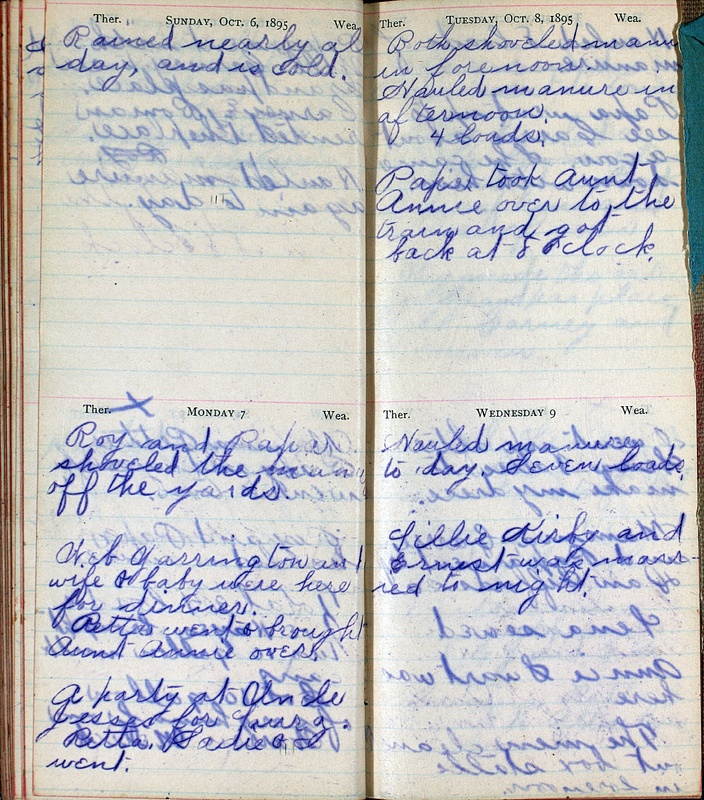 Ther. SUNDAY, OCT. 6, 1895 Wea.
Rained nearly al
day, and is cold.
Ther. MONDAY 7 Wea.
Roy and Papa
shoveled the manu
off the yards.
Web Garrington an
wife & baby were here
for dinner.
Retta went & brought
Aunt Annie over.
A party at Uncle
Jesses for
Retta, Sadie & I
went.
Ther. TUESDAY, OCT. 8, 1895 Wea.
Both shoveled manu
in forenoon.
Hauled manure in
afternoon.
4 loads.
Papa took Aunt
Annie over to the
train and got
back at 8 o'clock.
Ther. WEDNESDAY 9 Wea.
Hauled manure
to day. Seven loads.
Lillie Kirby and
Ernest was marr-
ied to night.